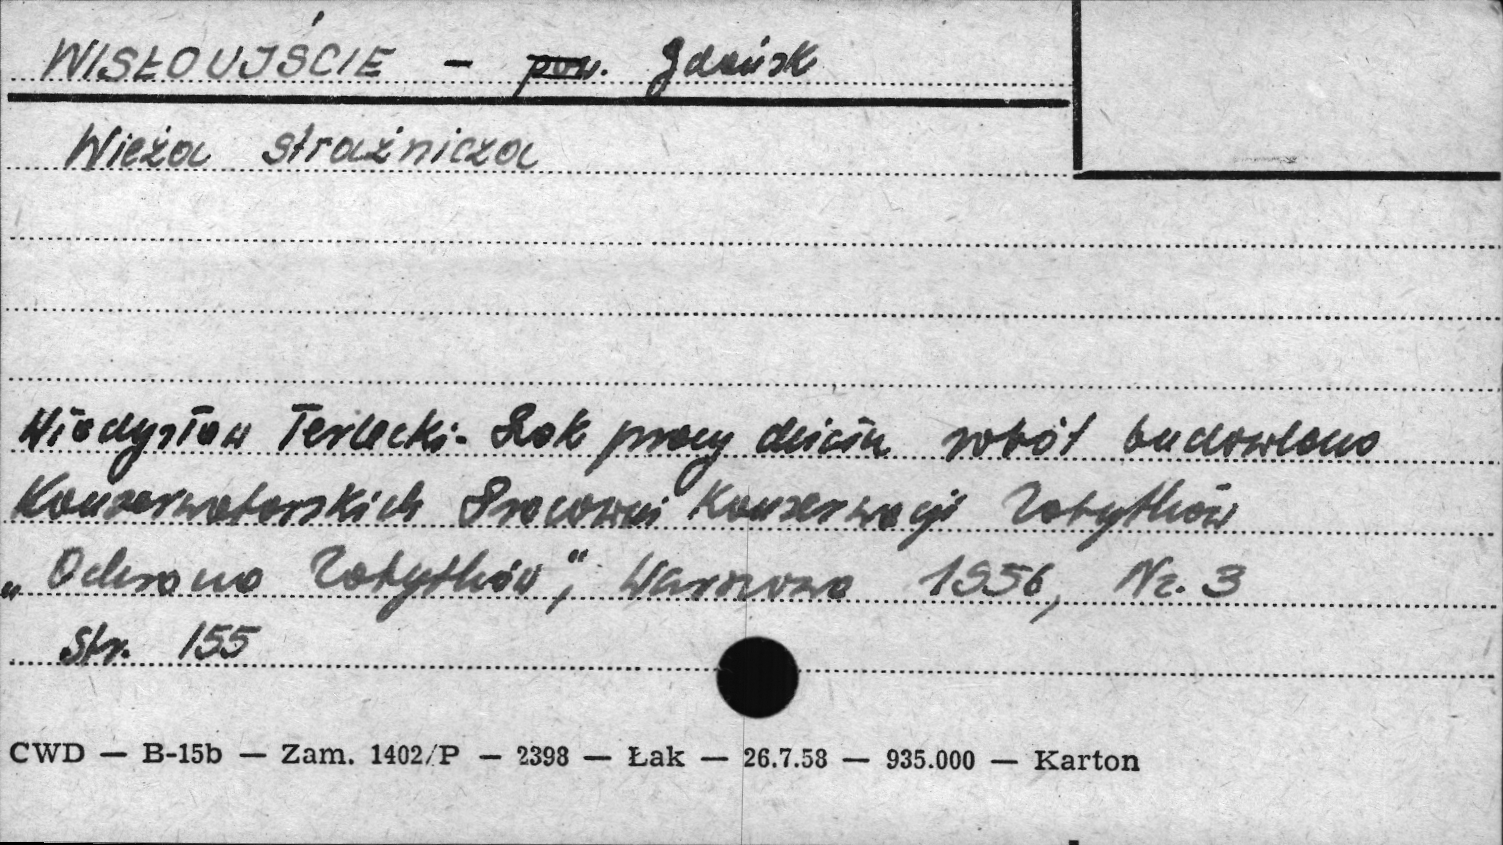 WISŁOUJŚCIE - pow. Gdańsk
Wieża strażnicza
Władysław Terlecki - Rok pracy robót budowlano
Konserwatorskich Pracowni Konserwacji Zabytków
„Ochrona Zabytków”, Warszawa 1956, Nr. 3
Str. 155
CWD — B-15b — Zam. 1402/P — 2398 — Łak — 26.7.58 — 935.000 — Karton